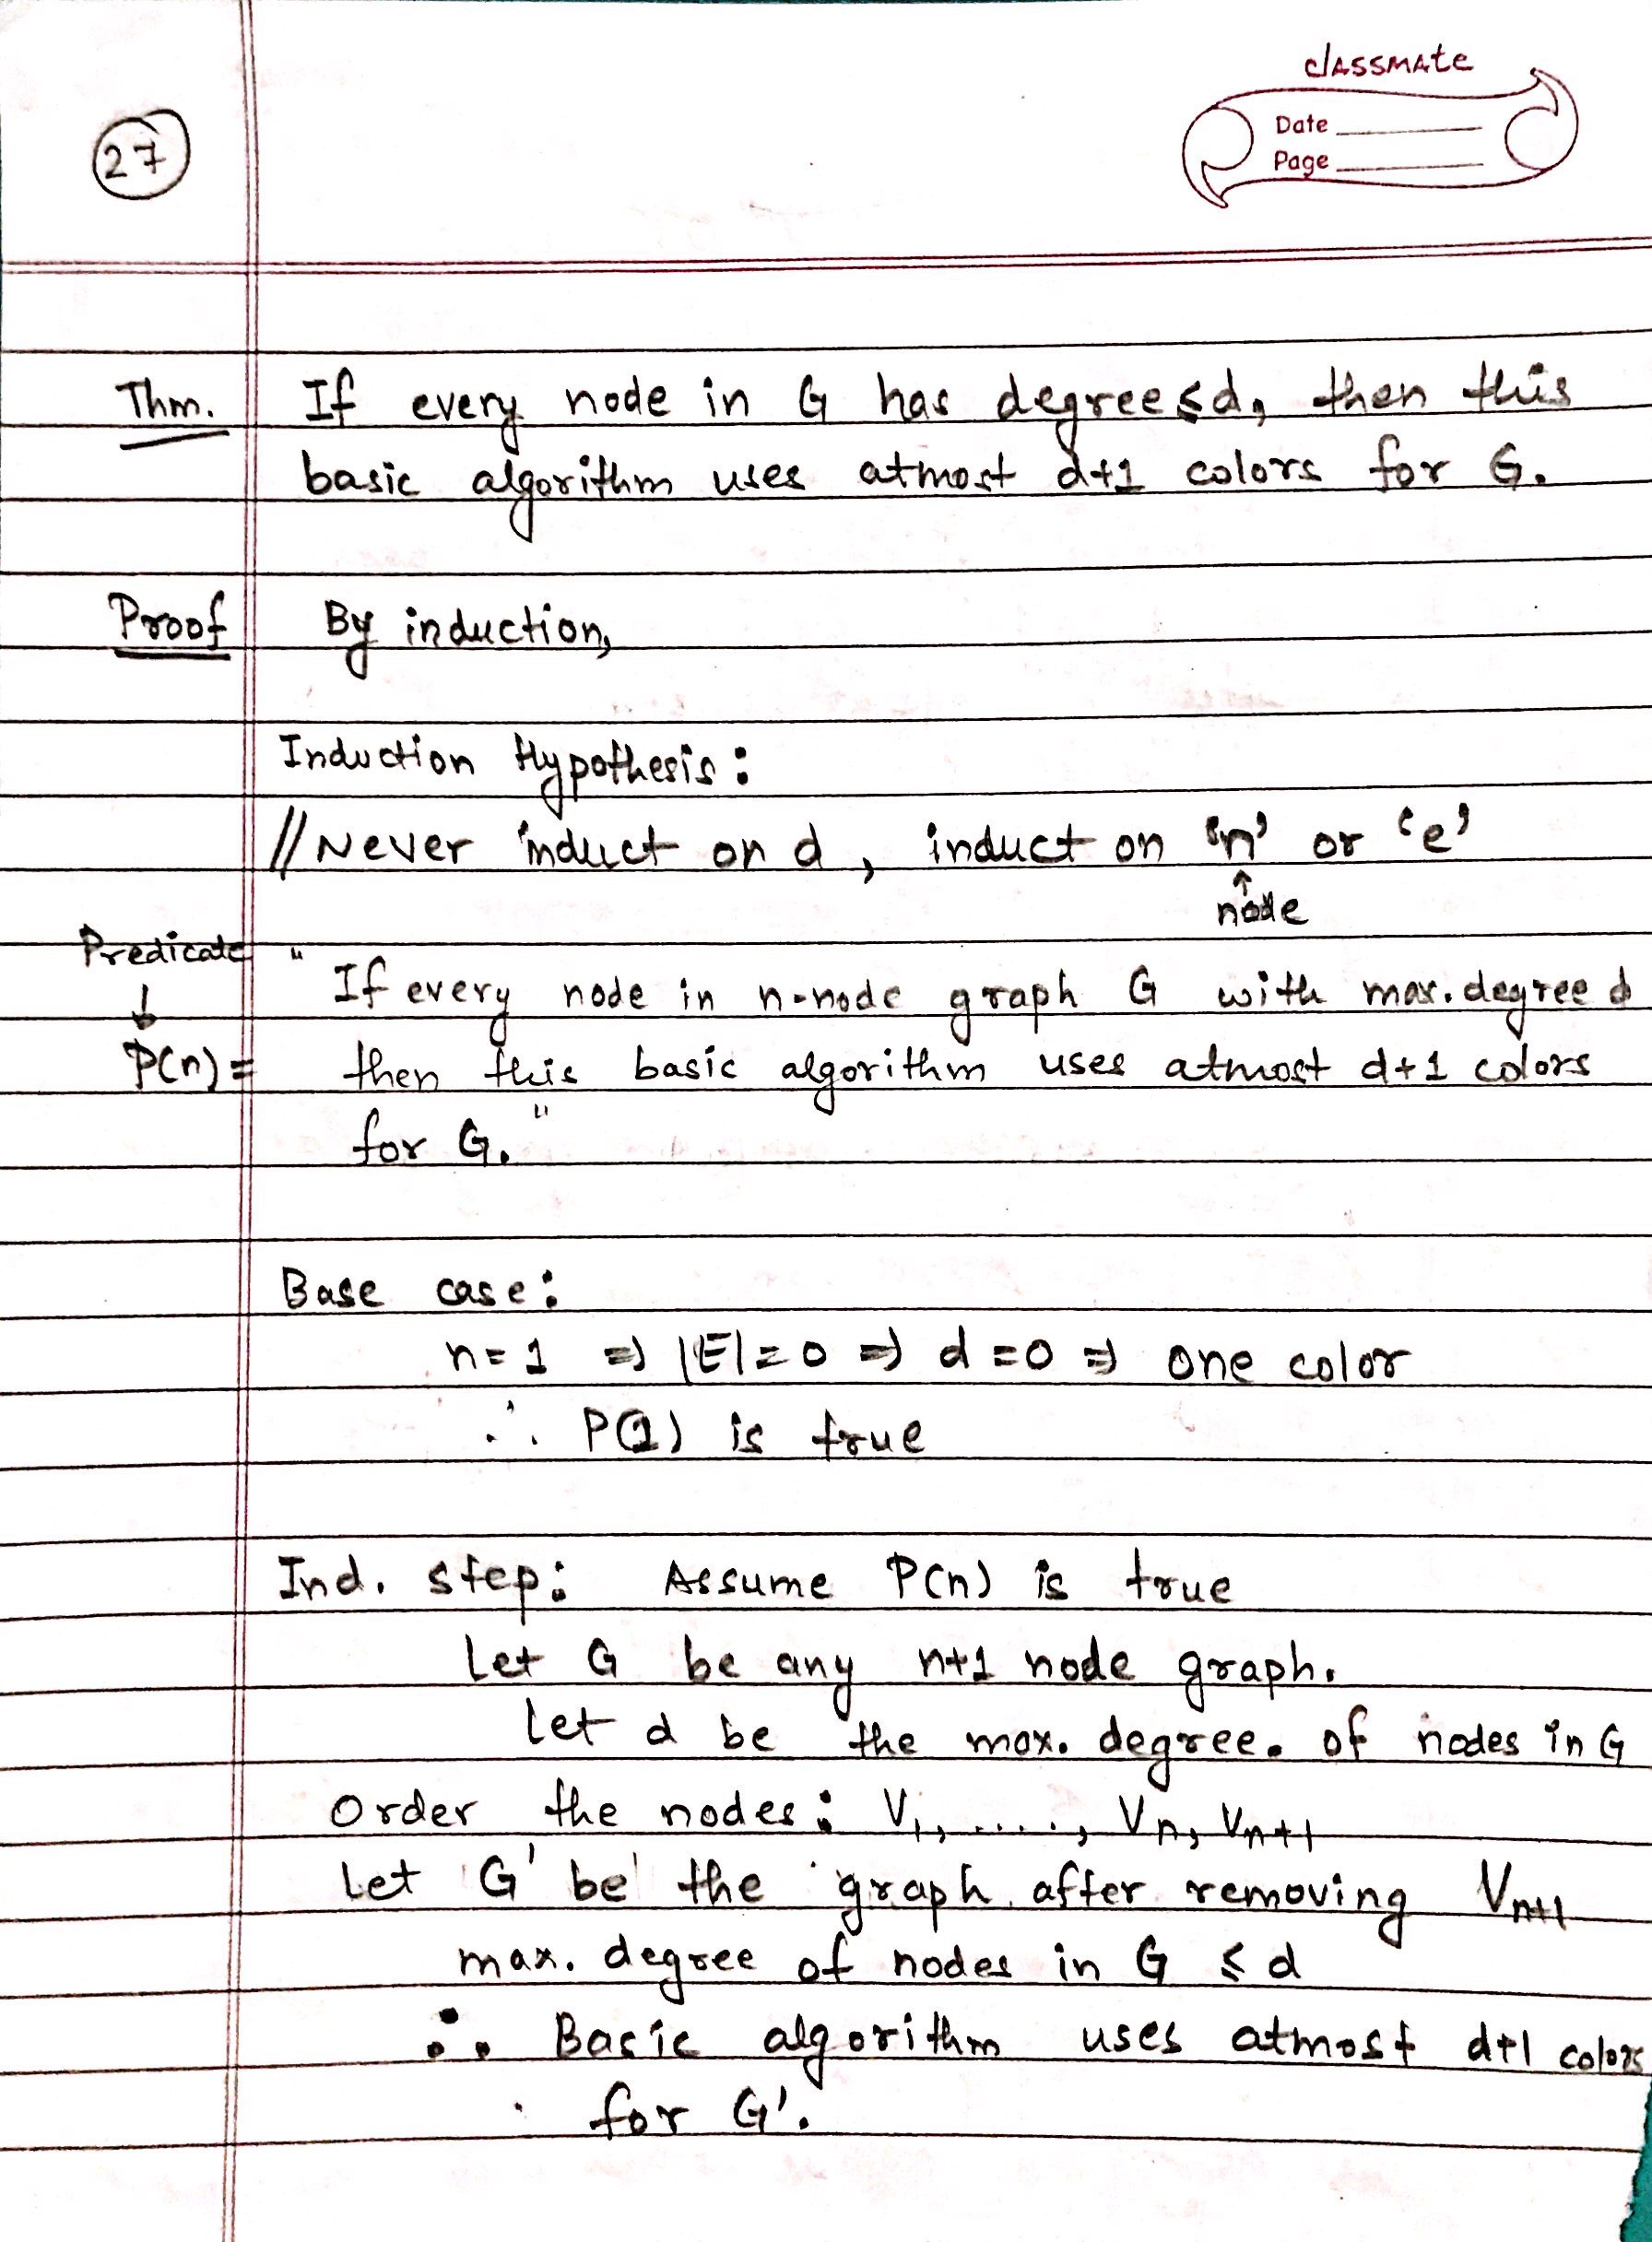 classmate
Date
Page
27
Thm. If every node in G has degree ≤ d, then this
basic algorithm uses atmost d+1 colors for G.
Proof By induction,
Induction Hypothesis:
// Never induct on d, induct on 'n' or 'e'
↑
node
Predicate
↓
"If every node in n-node graph G with max. degree d
P(n) = then this basic algorithm uses atmost d+1 colors
for G."
Base case:
n=1 ⇒ |E|=0 ⇒ d=0 ⇒ one color
∴ P(1) is true
Ind. step: Assume P(n) is true
Let G be any n+1 node graph.
Let d be the max. degree. of nodes in G
Order the nodes: V₁, ....., Vₙ, Vₙ₊₁
Let G' be the graph after removing Vₙ₊₁
max. degree of nodes in G ≤ d
∴ Basic algorithm uses atmost d+1 colors
for G'.